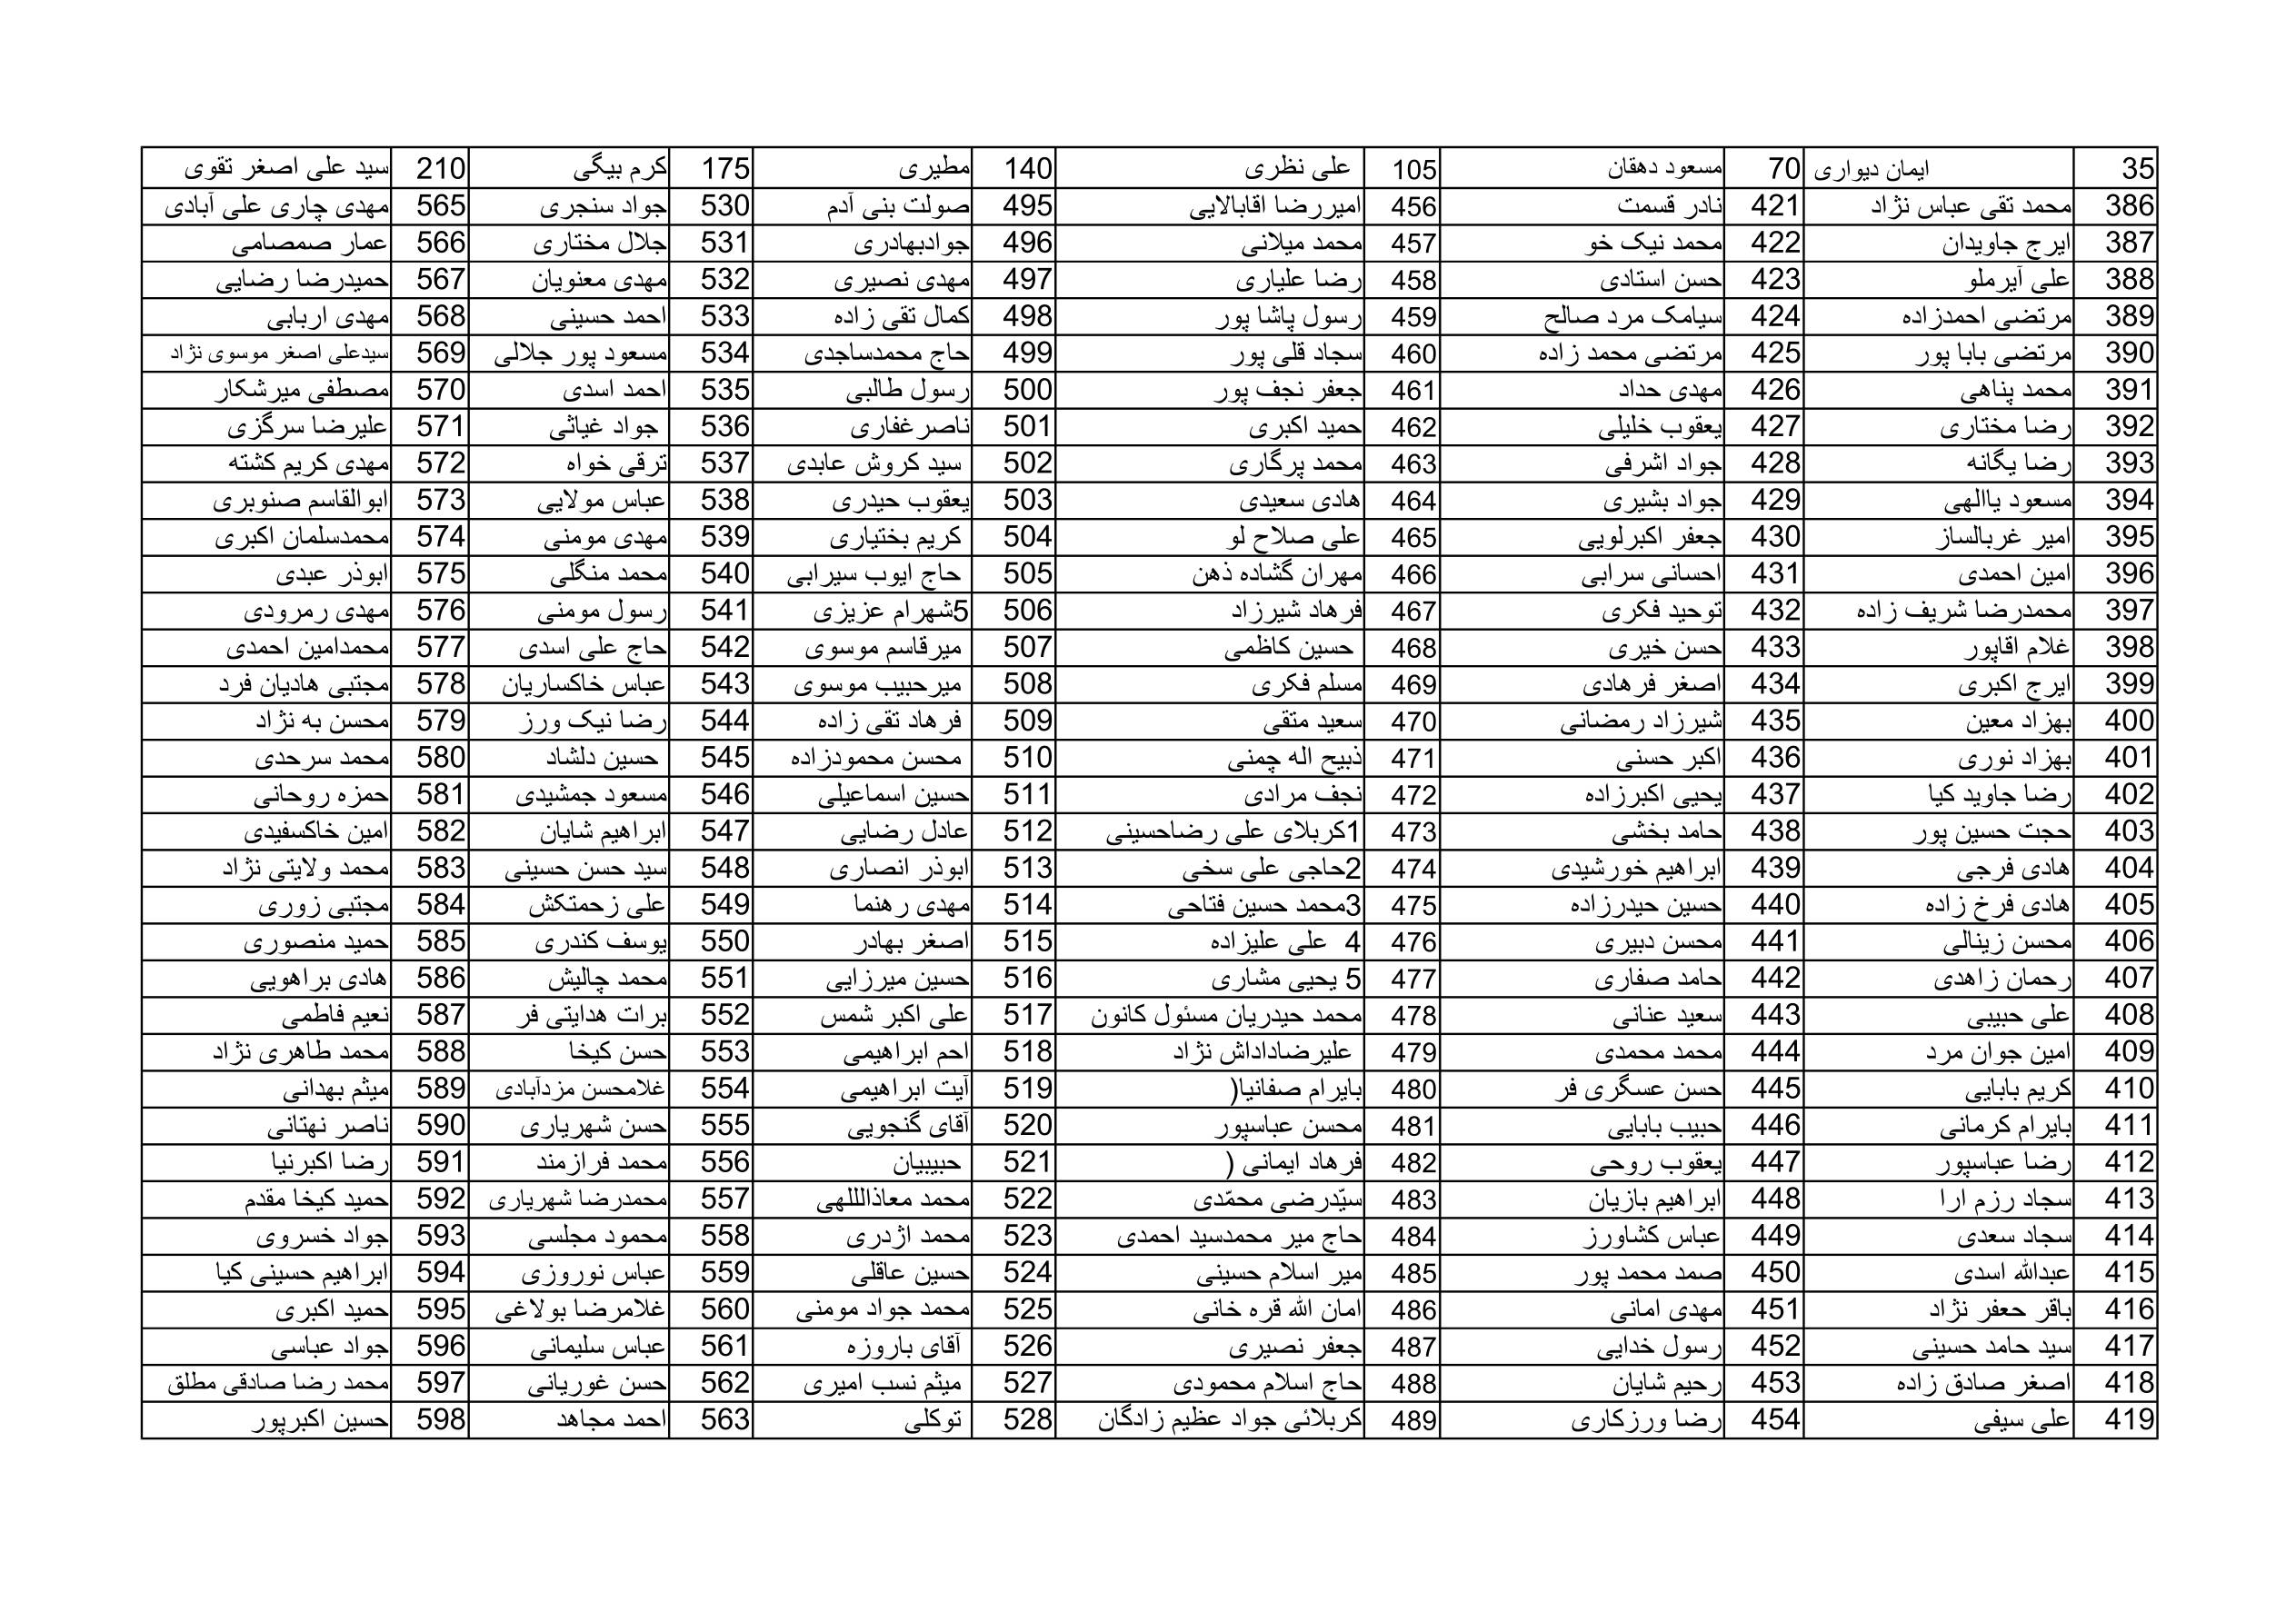 35 ایمان دیواری 70 مسعود دهقان 105 علی نظری 140 مطیری 175 کرم بیگی 210 سید علی اصغر تقوی
386 محمد تقی عباس نژاد 421 نادر قسمت 456 امیررضا اقابالایی 495 صولت بنی آدم 530 جواد سنجری 565 مهدی چاری علی آبادی
387 ایرج جاویدان 422 محمد نیک خو 457 محمد میلانی 496 جوادبهادری 531 جلال مختاری 566 عمار صمصامی
388 علی آیرملو 423 حسن استادی 458 رضا علیاری 497 مهدی نصیری 532 مهدی معنویان 567 حمیدرضا رضایی
389 مرتضی احمدزاده 424 سیامک مرد صالح 459 رسول پاشا پور 498 کمال تقی زاده 533 احمد حسینی 568 مهدی اربابی
390 مرتضی بابا پور 425 مرتضی محمد زاده 460 سجاد قلی پور 499 حاج محمدساجدی 534 مسعود پور جلالی 569 سیدعلی اصغر موسوی نژاد
391 محمد پناهی 426 مهدی حداد 461 جعفر نجف پور 500 رسول طالبی 535 احمد اسدی 570 مصطفی میرشکار
392 رضا مختاری 427 یعقوب خلیلی 462 حمید اکبری 501 ناصرغفاری 536 جواد غیاثی 571 علیرضا سرگزی
393 رضا یگانه 428 جواد اشرفی 463 محمد پرگاری 502 سید کروش عابدی 537 ترقی خواه 572 مهدی کریم کشته
394 مسعود یاالهی 429 جواد بشیری 464 هادی سعیدی 503 یعقوب حیدری 538 عباس مولایی 573 ابوالقاسم صنوبری
395 امیر غربالساز 430 جعفر اکبرلویی 465 علی صلاح لو 504 کریم بختیاری 539 مهدی مومنی 574 محمدسلمان اکبری
396 امین احمدی 431 احسانی سرابی 466 مهران گشاده ذهن 505 حاج ایوب سیرابی 540 محمد منگلی 575 ابوذر عبدی
397 محمدرضا شریف زاده 432 توحید فکری 467 فرهاد شیرزاد 506 5شهرام عزیزی 541 رسول مومنی 576 مهدی رمرودی
398 غلام اقاپور 433 حسن خیری 468 حسین کاظمی 507 میرقاسم موسوی 542 حاج علی اسدی 577 محمدامین احمدی
399 ایرج اکبری 434 اصغر فرهادی 469 مسلم فکری 508 میرحبیب موسوی 543 عباس خاکساریان 578 مجتبی هادیان فرد
400 بهزاد معین 435 شیرزاد رمضانی 470 سعید متقی 509 فرهاد تقی زاده 544 رضا نیک ورز 579 محسن به نژاد
401 بهزاد نوری 436 اکبر حسنی 471 ذبیح اله چمنی 510 محسن محمودزاده 545 حسین دلشاد 580 محمد سرحدی
402 رضا جاوید کیا 437 یحیی اکبرزاده 472 نجف مرادی 511 حسین اسماعیلی 546 مسعود جمشیدی 581 حمزه روحانی
403 حجت حسین پور 438 حامد بخشی 473 1کربلای علی رضاحسینی 512 عادل رضایی 547 ابراهیم شایان 582 امین خاکسفیدی
404 هادی فرجی 439 ابراهیم خورشیدی 474 2حاجی علی سخی 513 ابوذر انصاری 548 سید حسن حسینی 583 محمد ولایتی نژاد
405 هادی فرخ زاده 440 حسین حیدرزاده 475 3محمد حسین فتاحی 514 مهدی رهنما 549 علی زحمتکش 584 مجتبی زوری
406 محسن زینالی 441 محسن دبیری 476 4 علی علیزاده 515 اصغر بهادر 550 یوسف کندری 585 حمید منصوری
407 رحمان زاهدی 442 حامد صفاری 477 5 یحیی مشاری 516 حسین میرزایی 551 محمد چالیش 586 هادی براهویی
408 علی حبیبی 443 سعید عنانی 478 محمد حیدریان مسئول کانون 517 علی اکبر شمس 552 برات هدایتی فر 587 نعیم فاطمی
409 امین جوان مرد 444 محمد محمدی 479 علیرضاداداش نژاد 518 احم ابراهیمی 553 حسن کیخا 588 محمد طاهری نژاد
410 کریم بابایی 445 حسن عسگری فر 480 بایرام صفانیا( 519 آیت ابراهیمی 554 غلامحسن مزدآبادی 589 میثم بهدانی
411 بایرام کرمانی 446 حبیب بابایی 481 محسن عباسپور 520 آقای گنجویی 555 حسن شهریاری 590 ناصر نهتانی
412 رضا عباسپور 447 یعقوب روحی 482 فرهاد ایمانی ( 521 حبیبیان 556 محمد فرازمند 591 رضا اکبرنیا
413 سجاد رزم ارا 448 ابراهیم بازیان 483 سیّدرضی محمّدی 522 محمد معاذاللهی 557 محمدرضا شهریاری 592 حمید کیخا مقدم
414 سجاد سعدی 449 عباس کشاورز 484 حاج میر محمدسید احمدی 523 محمد اژدری 558 محمود مجلسی 593 جواد خسروی
415 عبدالله اسدی 450 صمد محمد پور 485 میر اسلام حسینی 524 حسین عاقلی 559 عباس نوروزی 594 ابراهیم حسینی کیا
416 باقر حعفر نژاد 451 مهدی امانی 486 امان الله قره خانی 525 محمد جواد مومنی 560 غلامرضا بولاغی 595 حمید اکبری
417 سید حامد حسینی 452 رسول خدایی 487 جعفر نصیری 526 آقای باروزه 561 عباس سلیمانی 596 جواد عباسی
418 اصغر صادق زاده 453 رحیم شایان 488 حاج اسلام محمودی 527 میثم نسب امیری 562 حسن غوریانی 597 محمد رضا صادقی مطلق
419 علی سیفی 454 رضا ورزکاری 489 کربلائی جواد عظیم زادگان 528 توکلی 563 احمد مجاهد 598 حسین اکبرپور